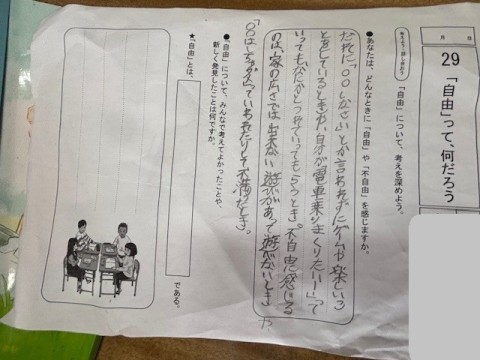 月　日
29 「自由」って、何だろう
考えよう・話し合おう
「自由」について、考えを深めよう。
●あなたは、どんなときに「自由」や「不自由」を感じますか。
だれに「○○しなさい」とか言われずにゲームや楽しいこ
とをしているときや、自分が「電車乗りまくりたい！」って
いってもだれかとつれていってもらうとき。不自由に感じる
のは、家の広さでは出来ない遊びがあって遊べないときや
「○○はしちゃダメ」っていわれたりして不満なとき。
●「自由」について、みんなで考えてよかったことや、
新しく発見したことは何ですか。
★「自由」とは、
である。